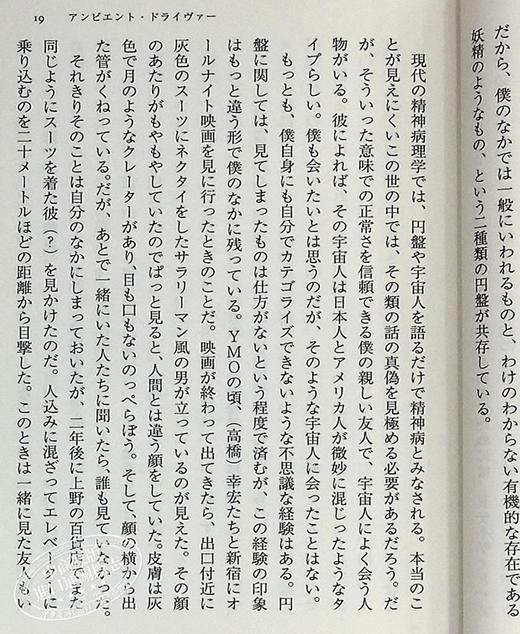 アンビエント・ドライヴァー
19
だから、僕のなかでは一般にいわれるものと、わけのわからない有機的な存在である
妖精のようなもの、という二種類の円盤が共存している。
現代の精神病理学では、円盤や宇宙人を語るだけで精神病とみなされる。本当のこ
とが見えにくいこの世の中では、その類の話の真偽を見極める必要があるだろう。だ
が、そういった意味での正常さを信頼できる僕の親しい友人で、宇宙人によく会う人
物がいる。彼によれば、その宇宙人は日本人とアメリカ人が微妙に混じったようなタ
イプらしい。僕も会いたいとは思うのだが、そのような宇宙人に会ったことはない。
もっとも、僕自身にも自分でカテゴライズできないような不思議な経験はある。円
盤に関しては、見てしまったものは仕方がないという程度で済むが、この経験の印象
はもっと違う形で僕のなかに残っている。YMOの頃、(高橋)幸宏たちと新宿にオ
ールナイト映画を見に行ったときのことだ。映画が終わって出てきたら、出口付近に
灰色のスーツにネクタイをしたサラリーマン風の男が立っているのが見えた。その顔
のあたりがもやもやしていたのでぱっと見ると、人間とは違う顔をしていた。皮膚は灰
色で月のようなクレーターがあり、目も口もないのっぺらぼう。そして、顔の横から出
た管がくねっている。だが、あとで一緒にいた人たちに聞いたら、誰も見ていなかった。
それきりそのことは自分のなかにしまっておいたが、二年後に上野の百貨店でまた
同じようにスーツを着た彼(?)を見かけたのだ。人込みに混ざってエレベーターに
乗り込むのを二十メートルほどの距離から目撃した。このときは一緒に見た友人もい